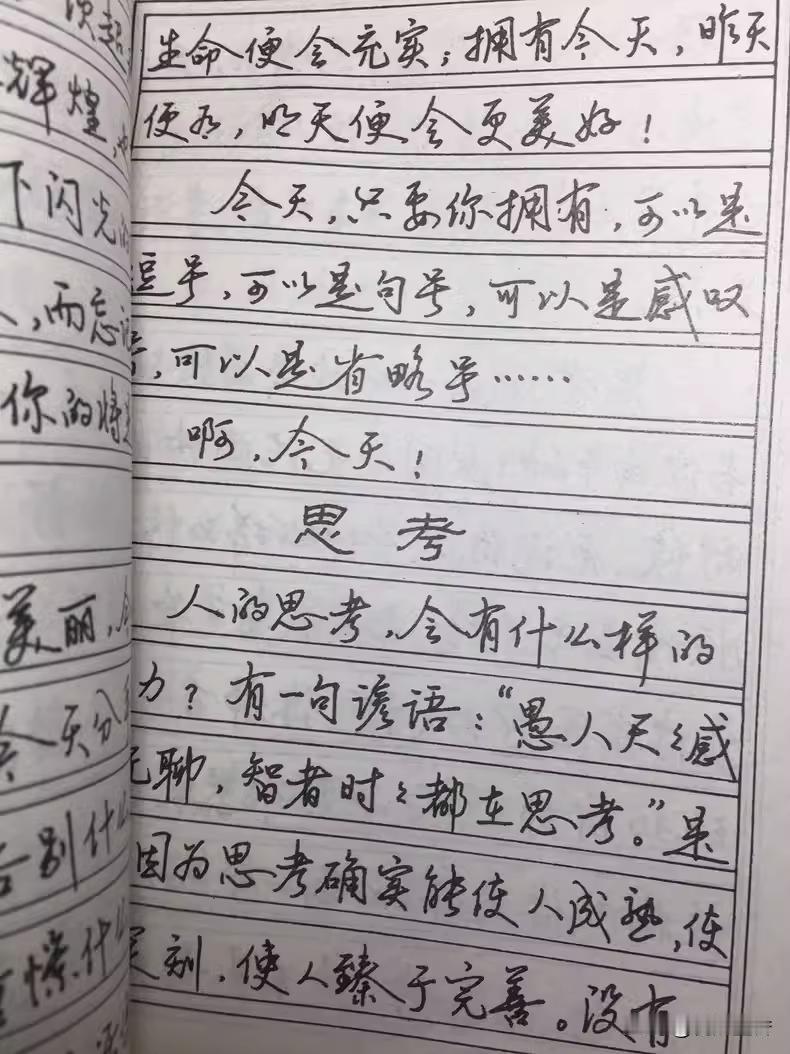 辉煌，
下闪光
，而忘
你的
美丽，
今天分
告别什么
什么
生命便会充实；拥有今天，昨天
便存，明天便会更美好！
今天，只要你拥有，可以是
逗号，可以是句号，可以是感叹
号，可以是省略号……
啊，今天！
思考
人的思考，会有什么样的
力？有一句谚语：“愚人天々感
无聊，智者时々都在思考。”是
因为思考确实能使人成熟，使
深刻，使人臻于完善。没有